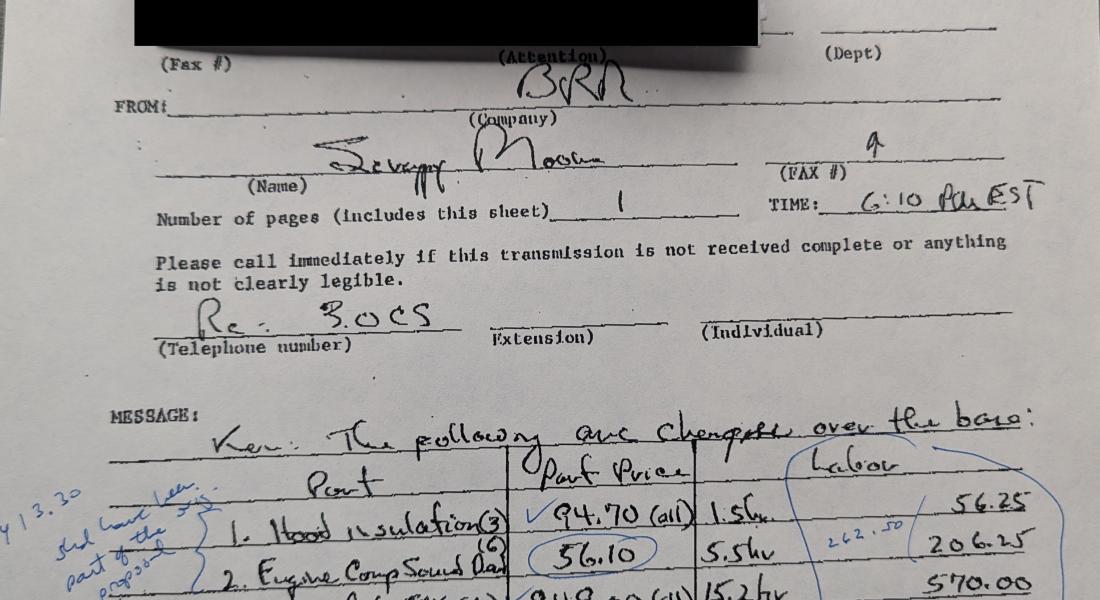 (Attention)
(Dept)
(Fax #)
BRR
FROM:
(Company)
(Name)
(FAX #)
Number of pages (includes this sheet) 1
TIME: 6:10 PM EST
Please call immediately if this transmission is not received complete or anything
is not clearly legible.
Re: 3.0CS
(Telephone number)
Extension)
(Individual)
MESSAGE:
Ken: The following are changes over the base:
Part Part Price Labor
1. Hood insulation (3) 94.70 (all) 1.5hr 56.25
2. Engine Comp Sound (6) 56.10 5.5hr 206.25
15.2hr 570.00
413.30
part of the
proposal
262.50